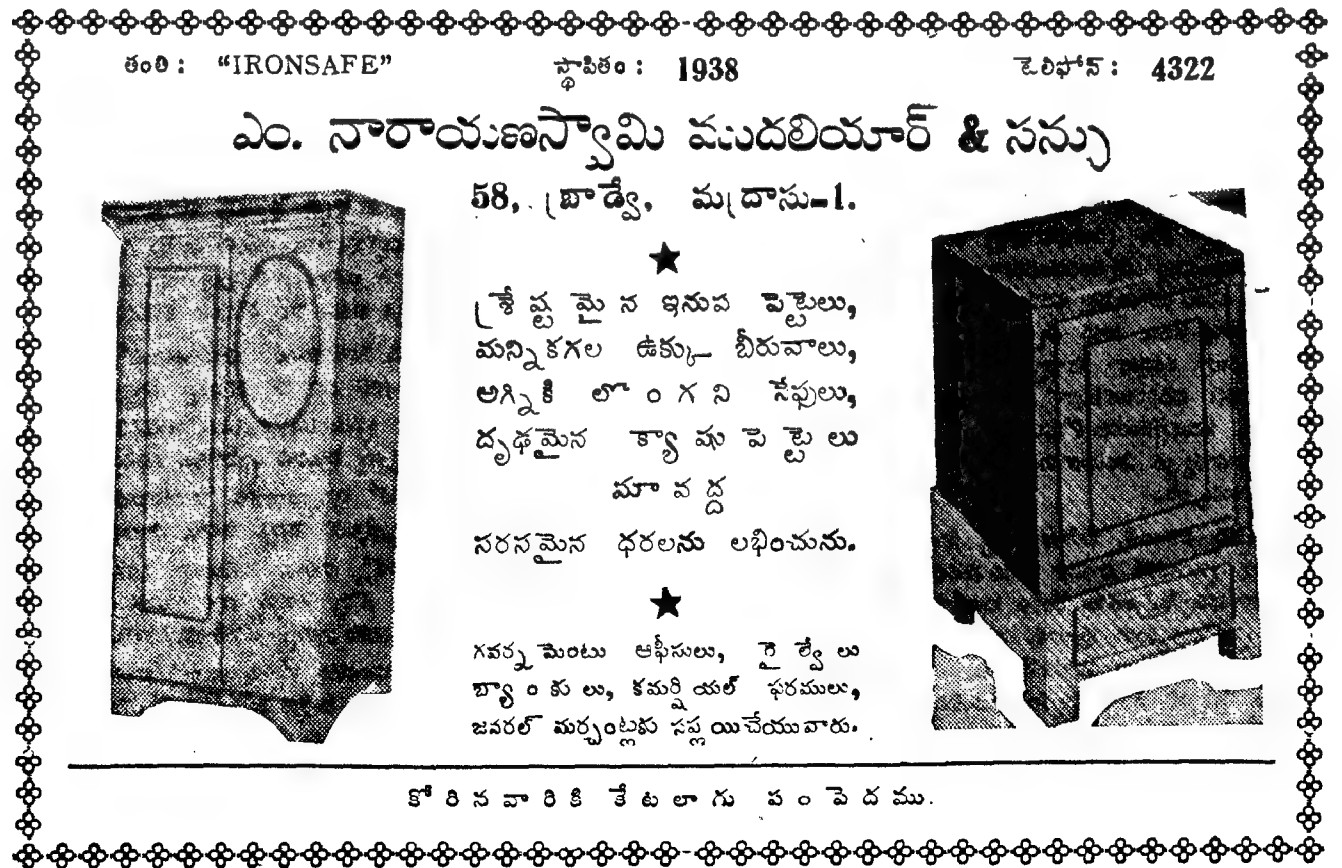 తంతి : "IRONSAFE" స్థాపితం : 1938 టెలిఫోన్ : 4322
ఎం. నారాయణస్వామి ముదలియార్ & సన్సు
58, బ్రాడ్వే, మద్రాసు-1.
శ్రేష్టమైన ఇనుప పెట్టెలు,
మన్నికగల ఉక్కు బీరువాలు,
అగ్నికి లొంగని సేఫులు,
దృఢమైన క్యాషుపెట్టెలు
మావద్ద
సరసమైన ధరలను లభించును.
గవర్నమెంటు ఆఫీసులు, రైల్వేలు
బ్యాంకులు, కమర్షియల్ ఫరములు,
జనరల్ మర్చంట్లకు సప్లయిచేయువారు.
కోరినవారికి కేటలాగు పంపెదము.